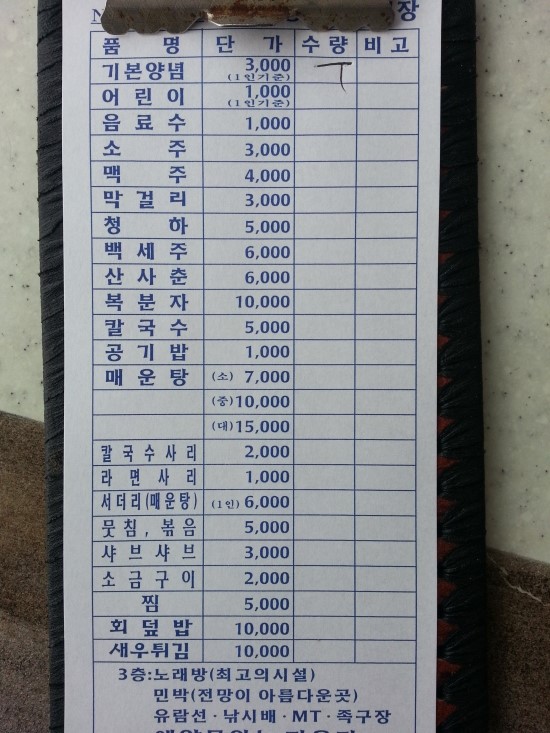 장
품 명 단 가 수량 비고
기본양념 3,000 (1인기준) ㅜ
어 린 이 1,000 (1인기준)
음 료 수 1,000
소 주 3,000
맥 주 4,000
막 걸 리 3,000
청 하 5,000
백 세 주 6,000
산 사 춘 6,000
복 분 자 10,000
칼 국 수 5,000
공 기 밥 1,000
매 운 탕 (소) 7,000
(중) 10,000
(대) 15,000
칼 국 수 사 리 2,000
라 면 사 리 1,000
서더리(매운탕) (1인) 6,000
뭇 침 , 볶 음 5,000
샤 브 샤 브 3,000
소 금 구 이 2,000
찜 5,000
회 덮 밥 10,000
새우튀김 10,000
3층:노래방(최고의시설)
민박(전망이 아름다운곳)
유람선·낚시배·MT·족구장